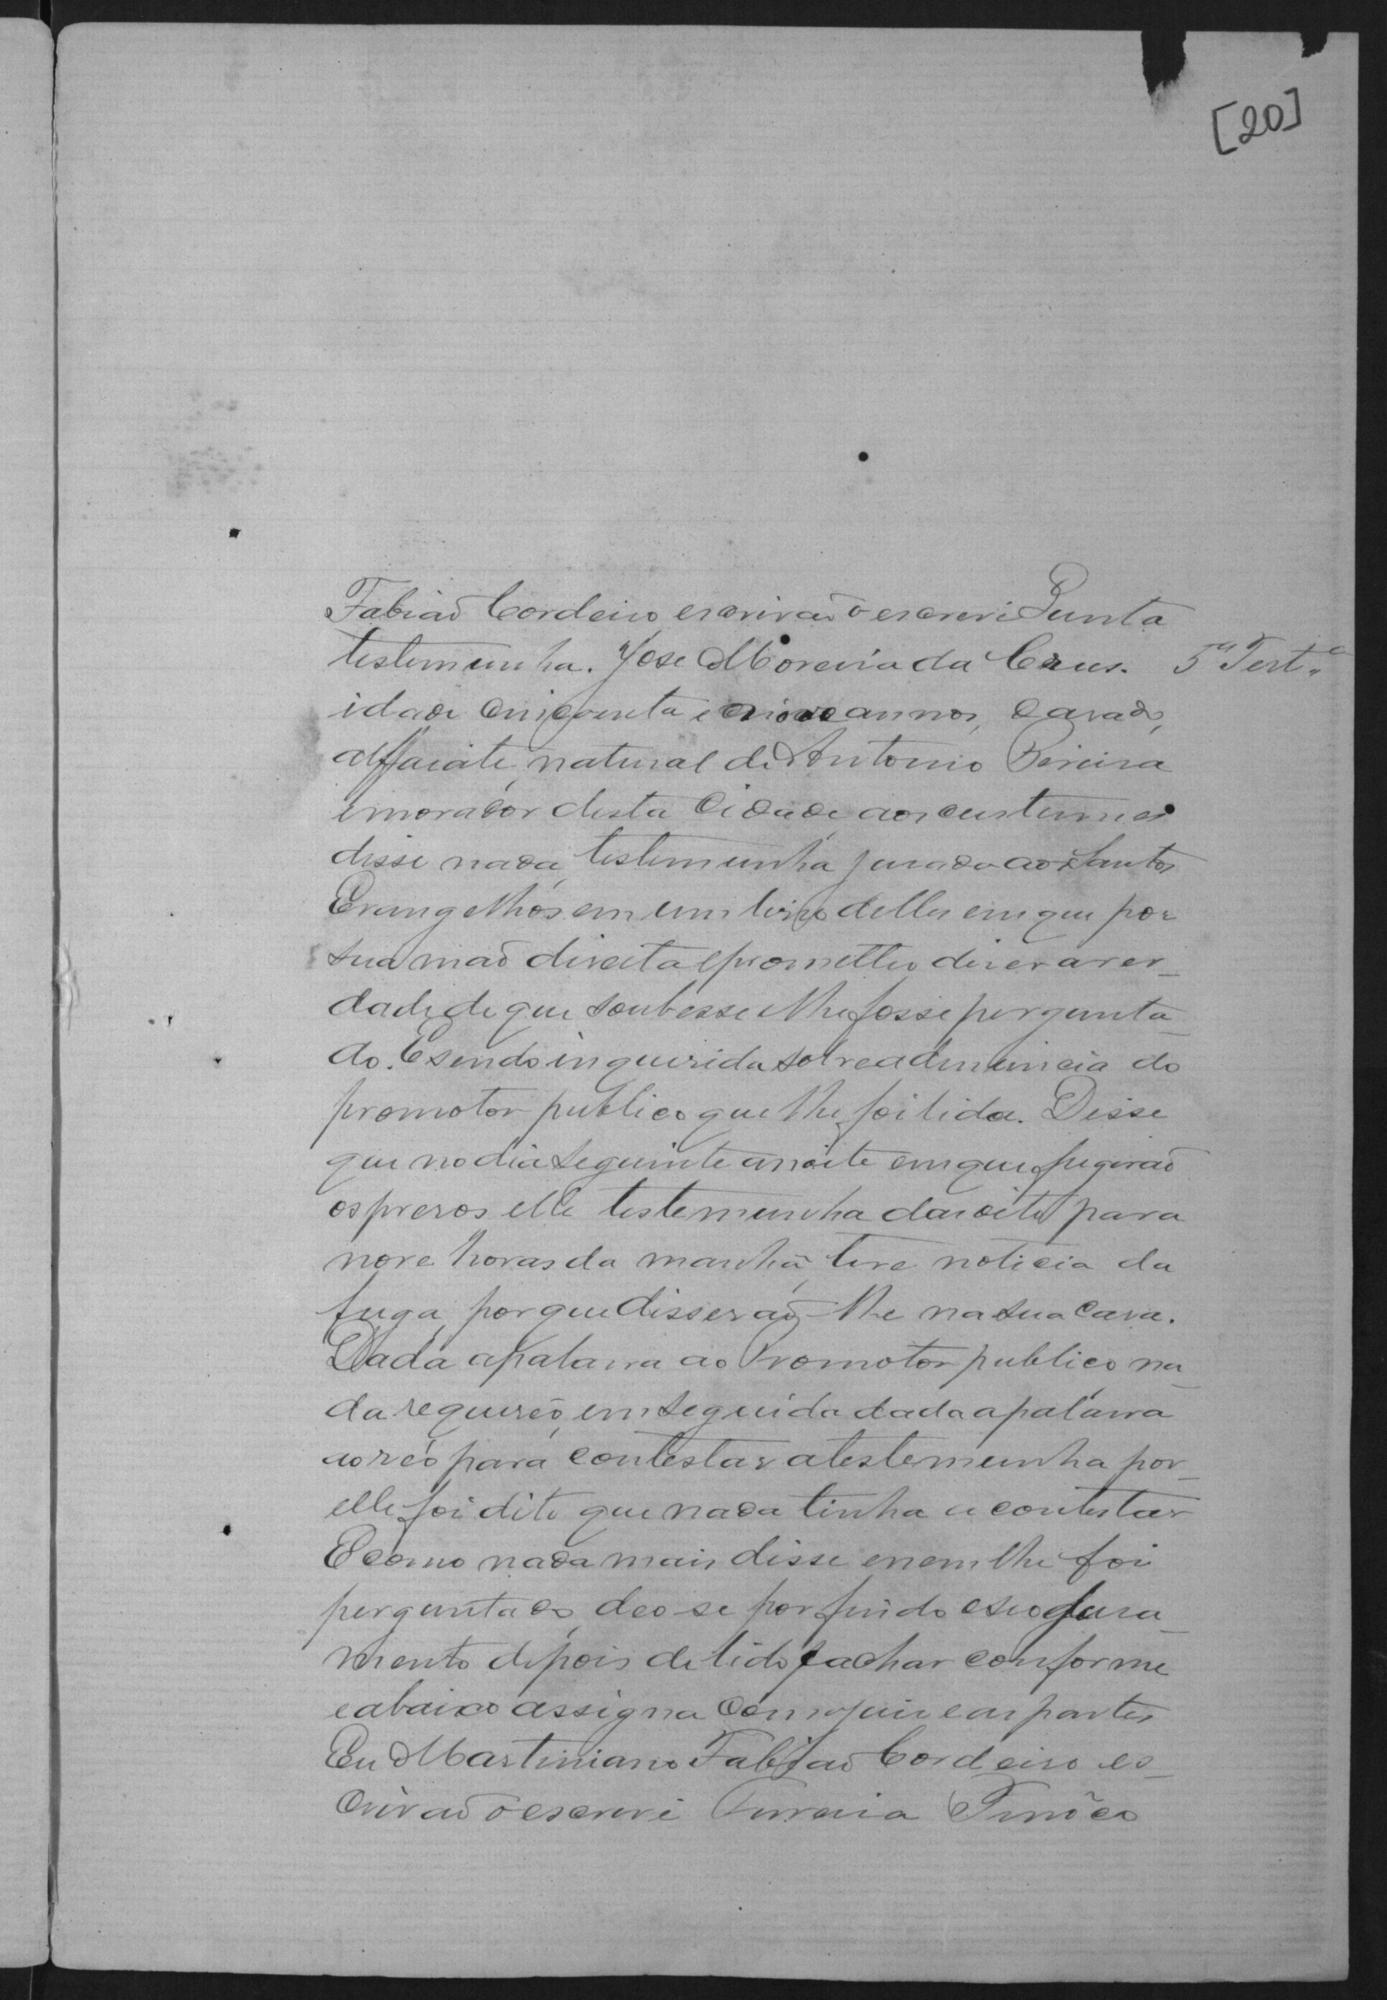 [20]
Fabiaõ Cordeiro escrivaõ o escrevi Quinta
testemunha. Jose Moreira da Crus. 5ª Testª
idade cincoenta e nove annos, casado,
alfaiate, natural de Antonio Pereira
e morador desta Cidade, aos custumes
disse nada, testemunha jurada aos Santos
Evangelhos em um livro delles em que pos
sua maõ direita e prometteo diser a ver-
dade de que soubesse e lhe fosse pergunta-
do. E sendo inquirida sobre a denuncia do
promotor publico que lhe foi lida. Disse
que no dia seguinte a noite em que fugiraõ
os presos elle testemunha das oito para
nove horas da manhã, teve noticia da
fuga, porque disseraõ-lhe na sua casa.
Dada a palavra ao Promotor publico na-
da requereo, em seguida dada a palavra
ao réo para contestar a testemunha por-
elle foi dito que nada tinha a contestar
E como nada mais disse e nem lhe foi
perguntado, deo-se por findo e seo jura-
mento depois de lido e achar conforme
e abaixo assigna com o juis e as partes
Eu Martiniano Fabiaõ Cordeiro es-
crivaõ o escrevi Ferreira Tinôco